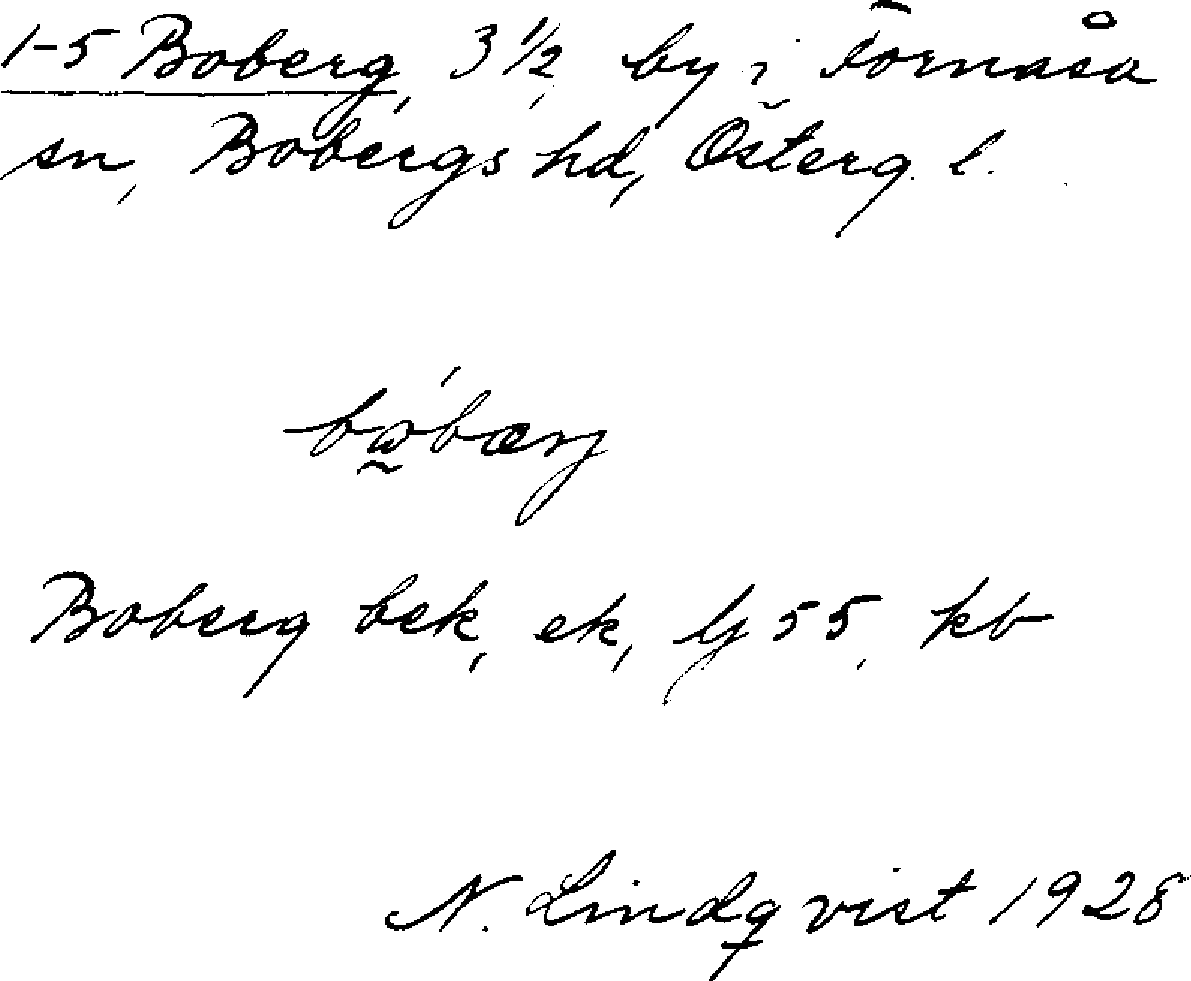 1-5 Boberg, 3 1/2, by i Fornåsa
sn, Bobergs hd, Österg. l.
Boberg bek, ek, Gf 55, kb
N. Lindqvist 1928